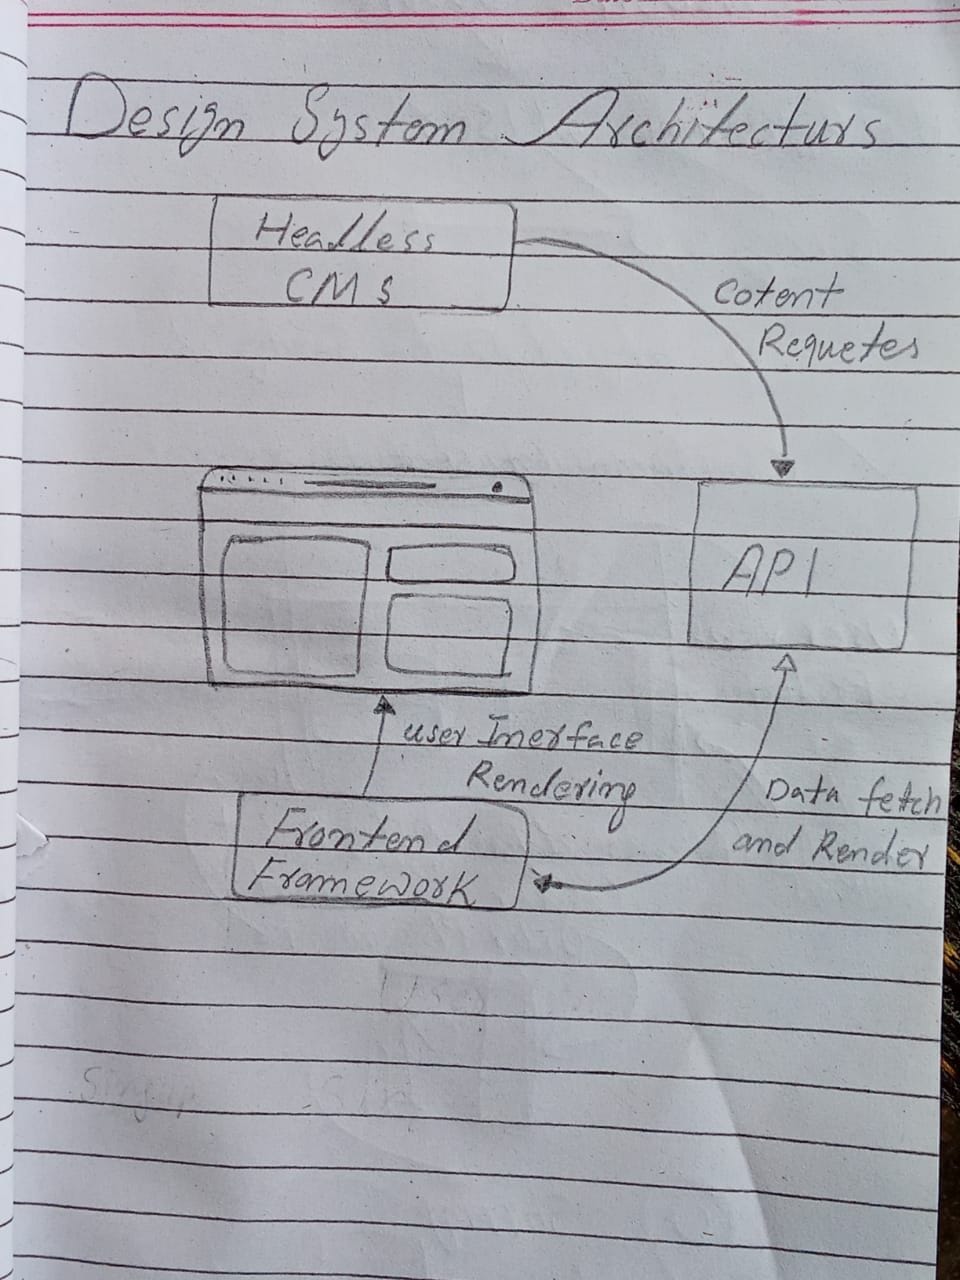 Design System Architecturs
Headless
CMS
Cotent
Requetes
API
user Inerface
Rendering
Data fetch
and Render
Frontend
Framework